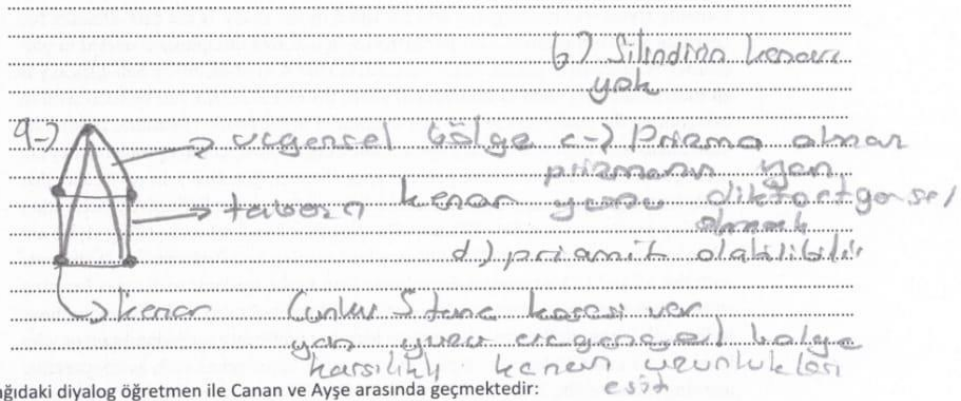 b) Silindirin kenarı
yok
a-) → üçgensel bölge c-) Prizma olmaz
prizmanın yan
→ taban kenar yüzü diktörtgensel
olmalı
d) priamit olabilibilir
→ kenar Çünkü 5 tane köşesi var
yan yüzü üçgengsel bölge
karşılıklı kenar uzunlukları
eşit
ağıdaki diyalog öğretmen ile Canan ve Ayşe arasında geçmektedir: